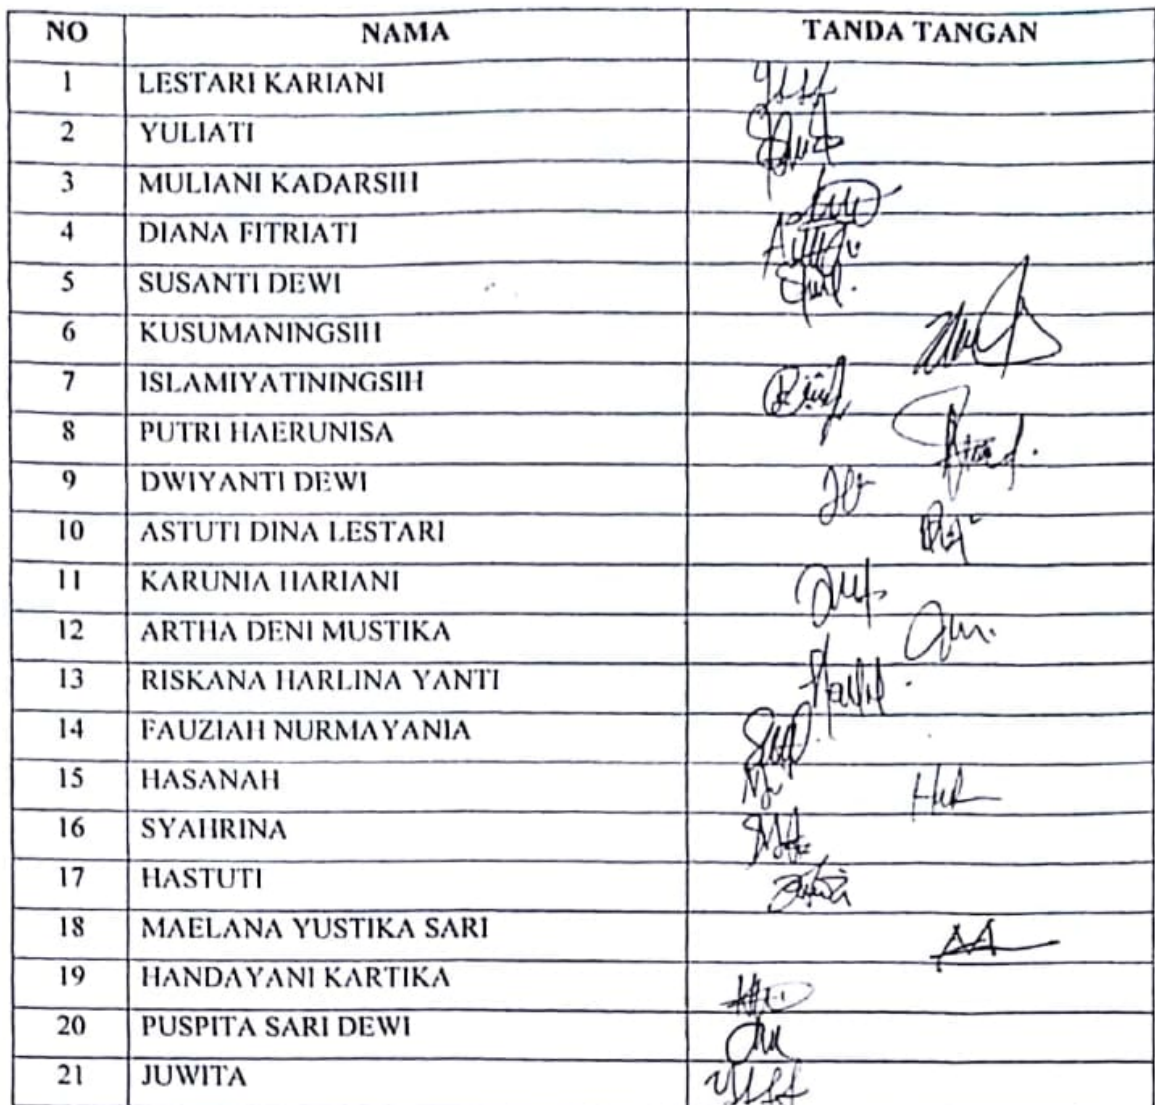 NO NAMA TANDA TANGAN
1 LESTARI KARIANI
2 YULIATI
3 MULIANI KADARSIH
4 DIANA FITRIATI
5 SUSANTI DEWI
6 KUSUMANINGSIH
7 ISLAMIYATININGSIH
8 PUTRI HAERUNISA
9 DWIYANTI DEWI
10 ASTUTI DINA LESTARI
11 KARUNIA HARIANI
12 ARTHA DENI MUSTIKA
13 RISKANA HARLINA YANTI
14 FAUZIAH NURMAYANIA
15 HASANAH
16 SYAHRINA
17 HASTUTI
18 MAELANA YUSTIKA SARI
19 HANDAYANI KARTIKA
20 PUSPITA SARI DEWI
21 JUWITA